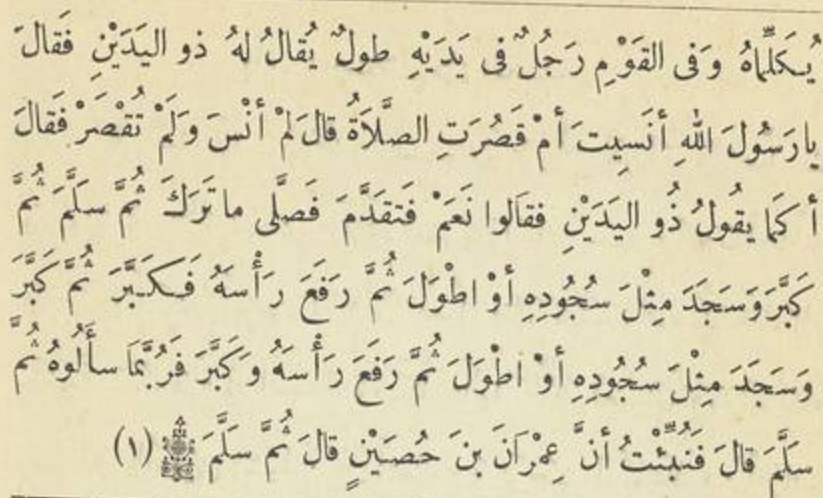 يُكَلِّمَاهُ وَفى القَوْمِ رَجُلٌ فى يَدَيْهِ طولٌ يُقالُ لهُ ذو اليَدَيْنِ فَقالَ
يارَسُولَ اللهِ أنَسِيتَ أمْ قَصُرَتِ الصَّلاَةُ قالَ لمْ أنْسَ وَلَمْ تُقْصَرْ فَقالَ
أكَمَا يقُولُ ذُو اليَدَيْنِ فقَالوا نَعَمْ فَتقَدَّمَ فَصَلَّى ماتَرَكَ ثُمَّ سلَّمَ ثُمَّ
كَبَّرَ وَسَجَدَ مِثْلَ سُجُودِهِ أوْ اطْوَلَ ثُمَّ رَفَعَ رَأْسهُ فَكَبَّرَ ثُمَّ كَبَّرَ
وَسَجَدَ مِثْلَ سُجُودِهِ أوْ اطْوَلَ ثُمَّ رَفَعَ رَأْسَهُ وَكَبَّرَ فَرُبَّمَا سأَلُوهُ ثُمَّ
سَلَّمَ قالَ فَنُبِّئْتُ أنَّ عِمْرَانَ بنَ حُصَيْنٍ قالَ ثُمَّ سَلَّمَ (١)